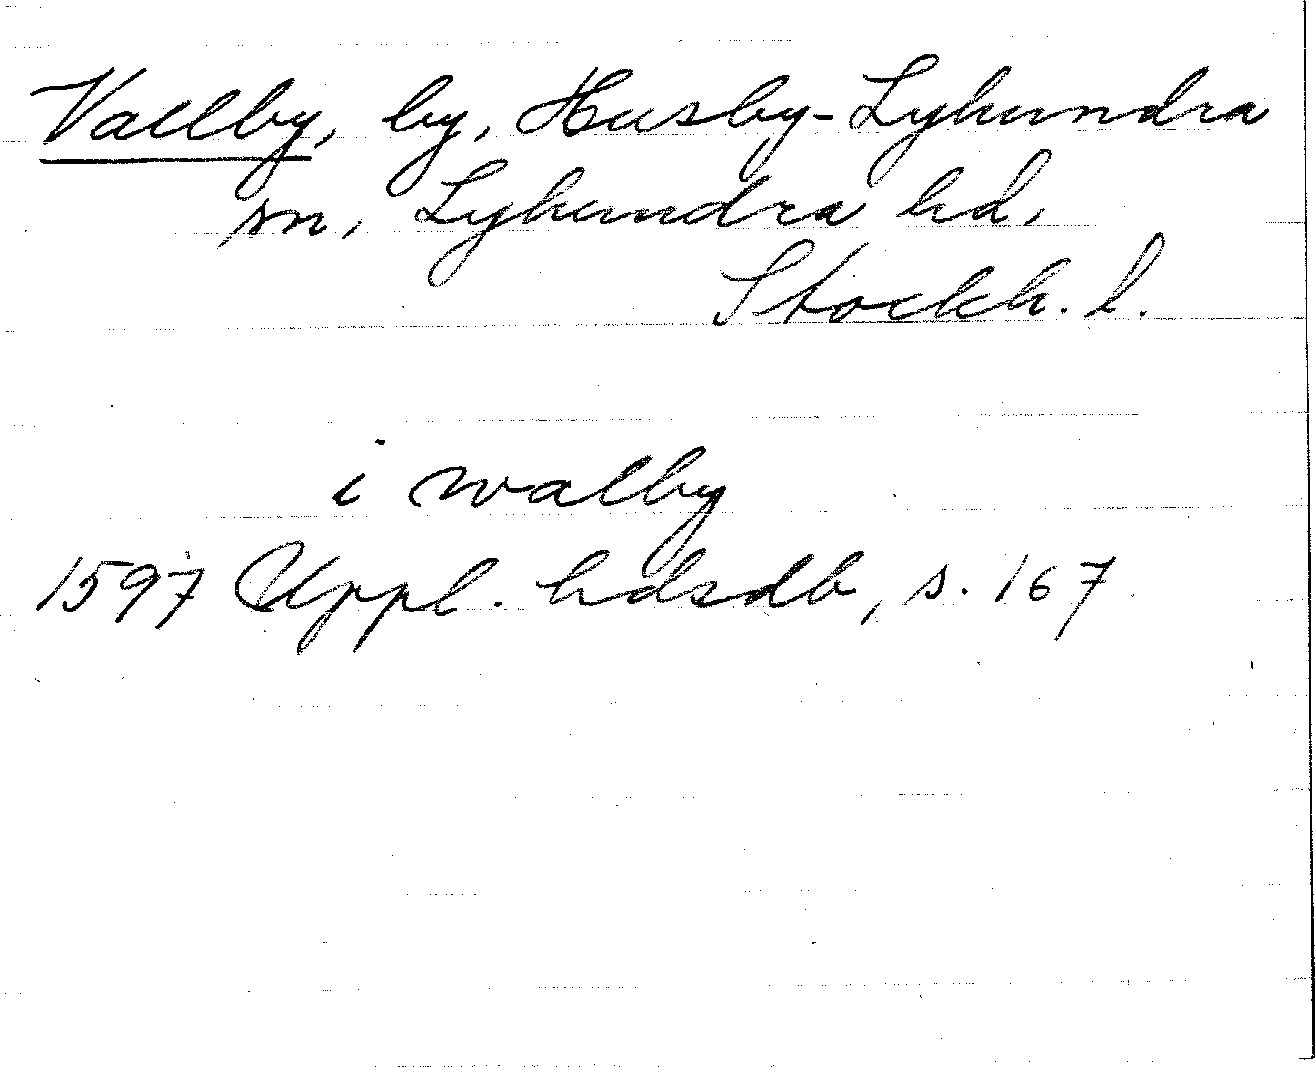 Vallby, by, Husby-Lyhundra
sn, Lyhundra hd,
Stockh. l.
i walby
1597 Uppl. hdsdb, s. 167